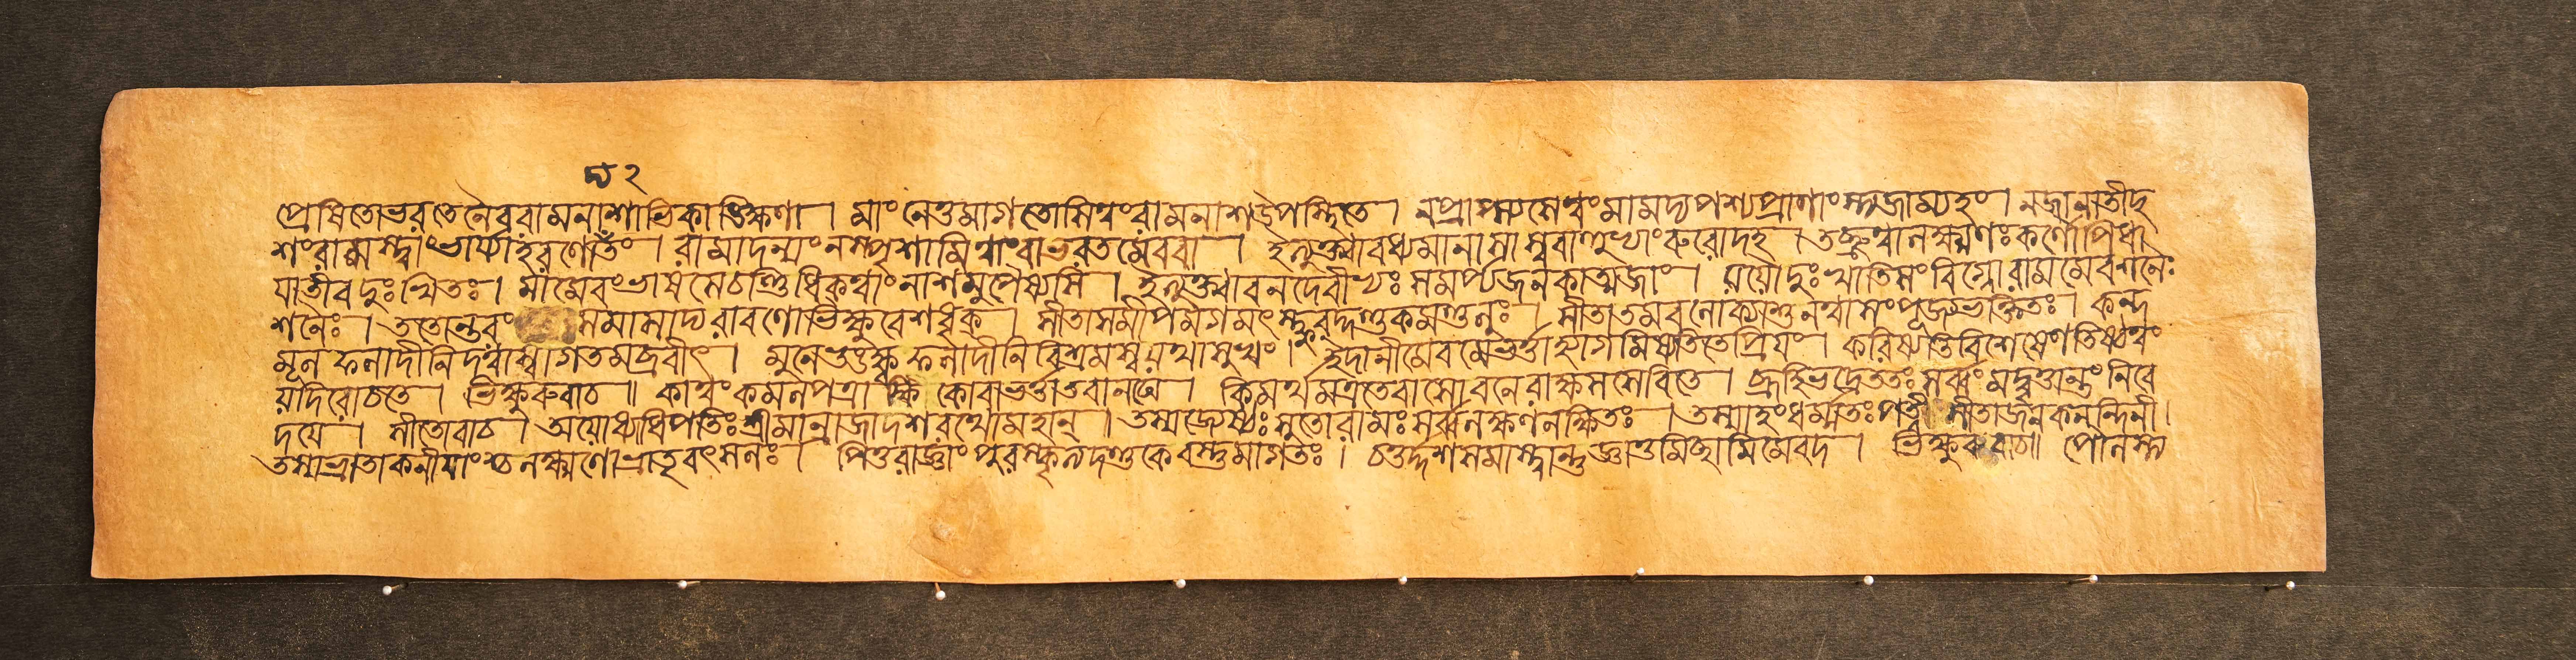 ৸২
প্রেষিতোভরতেনৈবরামনাশাভিকাঙ্ক্ষিণা । মাংনেতুমাগতোসিত্বংরামনাশউপস্থিতে । নপ্রাপ্স্যসেত্বংমামদ্যপশ্যপ্রাণাংস্ত্যজাম্যহং । নজানাতীদৃ
শংরামস্ত্বাংভার্য্যাহরণোদ্যতং । রামাদন্যংনস্পৃশামিত্বাংবাভরতমেববা । ইত্যুক্ত্বাবধ্যমানাসাস্ববাহুভ্যাংরুরোদহ । তচ্ছ্রুত্বালক্ষ্মণঃকর্ণৌপিধা
যাতীবদুঃখিতঃ । মামেবংভাষসেচণ্ডিধিকত্বাংনাশমুপৈষ্যসি । ইত্যুক্ত্বাবনদেবীভ্যঃসমর্প্যজনকাত্মজাং । যযৌদুঃখাতিসংবিগ্নোরামমেবশনৈঃ
শনৈঃ । ততোন্তরং সমাসাদ্যরাবণোভিক্ষুবেশধৃক্ । সীতাসমীপমগমৎস্ফুরদ্দণ্ডকমণ্ডলুঃ । সীতাতমবলোক্যাশুনত্বাসংপূজ্যভক্তিতঃ । কন্দ
মূলফলাদীনিদত্বাস্বাগতমব্রবীৎ । মুনেভুঙ্ক্ষ্বফলাদীনিবিশ্রমস্বযথাসুখং । ইদানীমেবমেভর্ত্তাহ্যাগমিষ্যতিতেপ্রিযং । করিষ্যতিবিশেষেণতিষ্ঠত্বং
যদিরোচতে । ভিক্ষুরুবাচ ॥ কাত্বংকমলপত্রাক্ষি কোবাভর্ত্তাতবানঘে । কিমর্থমত্রতেবাসোবনেরাক্ষসসেবিতে । ব্রূহিভদ্রেততঃসর্ব্বংমদ্বৃত্তান্তংনিবে
দযে । সীতোবাচ । অযোধ্যাধিপতিঃশ্রীমান্রাজাদশরথোমহান্ । তস্যজ্যেষ্ঠঃসুতোরামঃসর্ব্বলক্ষণলক্ষিতঃ । তস্যাহংধর্ম্মতঃপত্নী সীতাজনকনন্দিনী ।
তস্যভ্রাতাকনীযাংশ্চলক্ষ্মণোভ্রাতৃবৎসলঃ । পিতুরাজ্ঞাংপুরস্কৃত্যদণ্ডকেবস্তুমাগতঃ । চতুর্দ্দশসমাস্ত্বান্তুজ্ঞাতুমিচ্ছামিমেবদ । ভিক্ষুরুবাচ ॥ পৌলস্ত্য